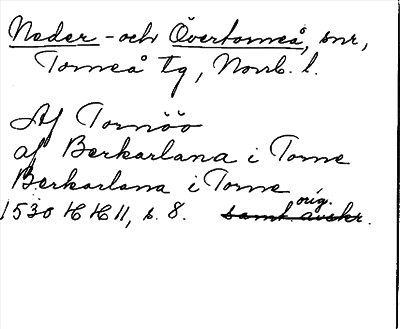 Neder- och Övertorneå, snr,
Torneå tg, Norrb. l.
Af Tornöö
af Berkarlana i Torne
Berkarlana i Torne
orig.
1530 HH 11, s. 8. samt avskr.